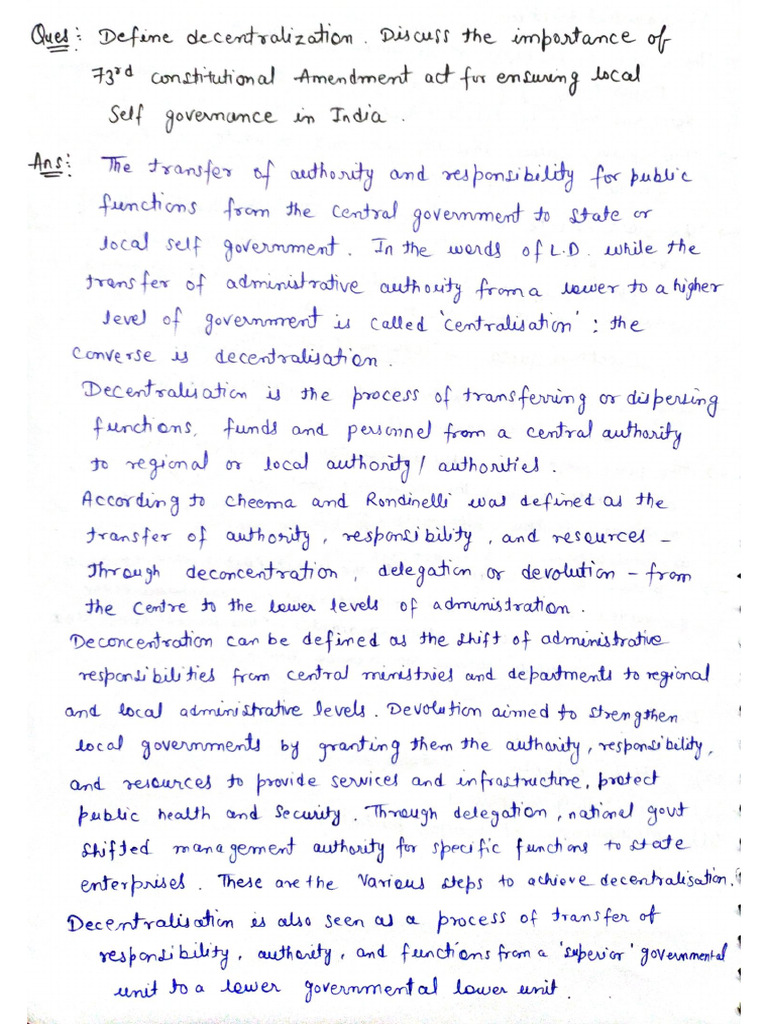 Ques: Define decentralization. Discuss the importance of
73rd constitutional Amendment act for ensuring local
Self governance in India.
Ans: The transfer of authority and responsibility for public
functions from the central government to state or
local self government. In the words of L.D. while the
transfer of administrative authority from a lower to a higher
level of government is called 'centralisation': the
converse is decentralisation.
Decentralisation is the process of transferring or dispersing
functions, funds and personnel from a central authority
to regional or local authority/ authorities.
According to Cheema and Rondinelli was defined as the
transfer of authority, responsibility, and resources –
through deconcentration, delegation or devolution – from
the centre to the lower levels of administration.
Deconcentration can be defined as the shift of administrative
responsibilities from central ministries and departments to regional
and local administrative levels. Devolution aimed to strengthen
local governments by granting them the authority, responsibility,
and resources to provide services and infrastructure, protect
public health and security. Through delegation, national govt
shifted management authority for specific functions to state
enterprises. These are the various steps to achieve decentralisation.
Decentralisation is also seen as a process of transfer of
responsibility, authority, and functions from a 'superior' governmental
unit to a lower governmental lower unit.